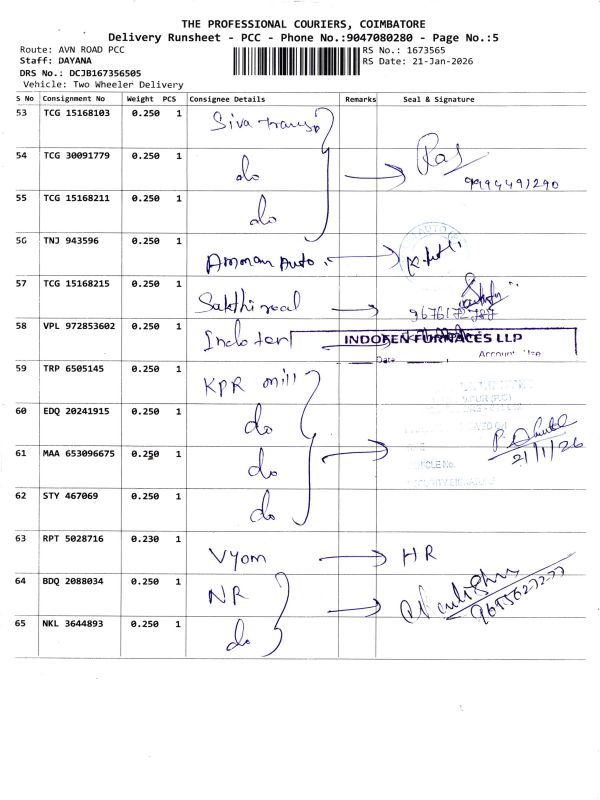 THE PROFESSIONAL COURIERS, COIMBATORE
Delivery Runsheet - PCC - Phone No.:9047080280 - Page No.:5
Route: AVN ROAD PCC RS No.: 1673565
Staff: DAYANA RS Date: 21-Jan-2026
DRS No.: DCJB167356505
Vehicle: Two Wheeler Delivery
S No Consignment No Weight PCS Consignee Details Remarks Seal & Signature
53 TCG 15168103 0.250 1 Siva transp
54 TCG 30091779 0.250 1 do Raj
9994491290
55 TCG 15168211 0.250 1 do
56 TNJ 943596 0.250 1 Amman Auto
57 TCG 15168215 0.250 1 Sakthi real
58 VPL 972853602 0.250 1 Indo ter
INDOFEN FURNACES LLP
Date Account
59 TRP 6505145 0.250 1 KPR mill
60 EDQ 20241915 0.250 1 do
61 MAA 653096675 0.250 1 do 21/1/26
62 STY 467069 0.250 1 do
63 RPT 5028716 0.230 1 Vyom HR
64 BDQ 2088034 0.250 1 NR
65 NKL 3644893 0.250 1 do